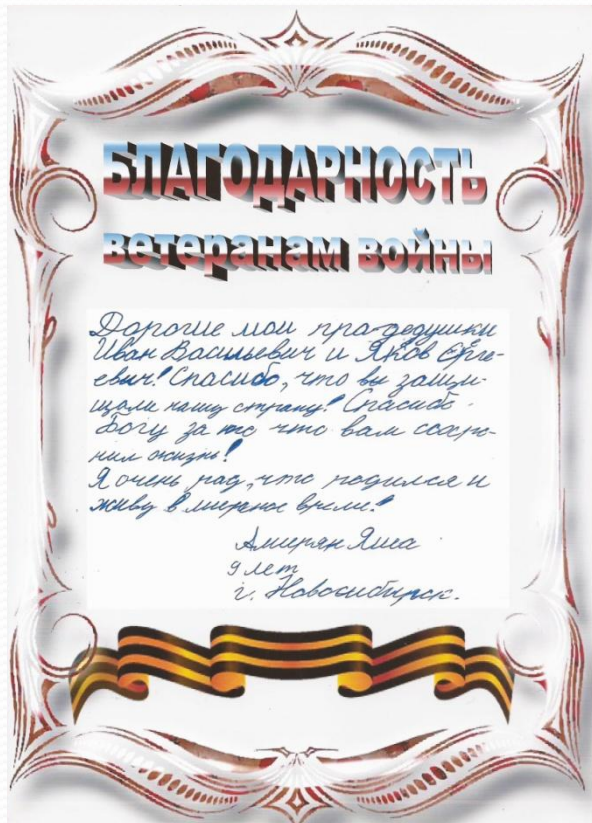 БЛАГОДАРНОСТЬ
ветеранам войны
Дорогие мои прадедушки
Иван Васильевич и Яков Ерге-
евич! Спасибо, что вы защи-
щали нашу страну! Спасибо
Богу за то что вам сохра-
нил жизнь!
Я очень рад, что родился и
живу в мирное время!
Амерян Яша
9 лет
г. Новосибирск.